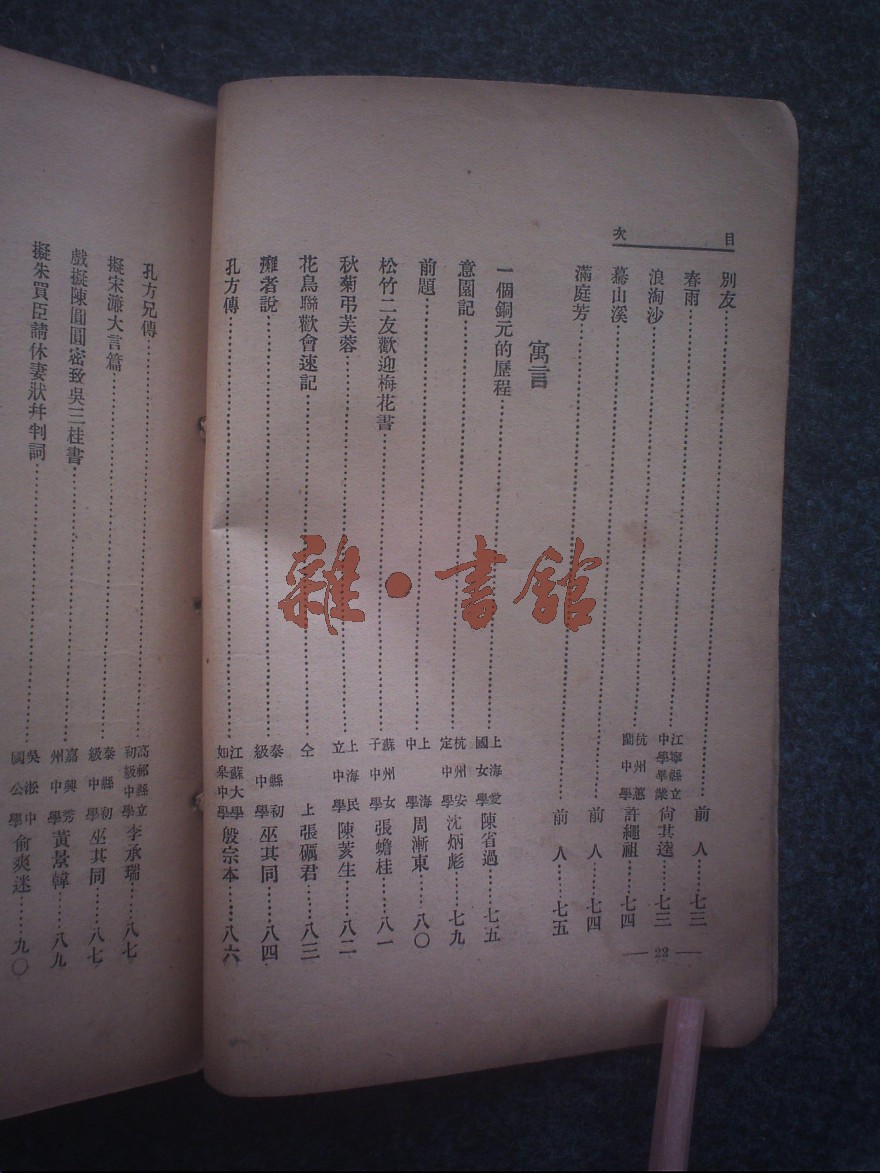 目次
別友……前人……七三
春雨……江寧縣立中學畢業 尚其逵……七三
浪淘沙……杭州蕙蘭中學 許繩祖……七四
驀山溪……前人……七四
滿庭芳……前人……七五
寓言
一個銅元的歷程……上海愛國女學 陳省過……七五
意園記……杭州安定中學 沈炳彪……七九
前題……上海中學 周漸東……八〇
松竹二友歡迎梅花書……蘇州女子中學 張蟾桂……八一
秋菊弔芙蓉……上海民立中學 陳荄生……八二
花鳥聯歡會速記……仝上 張礪君……八三
癱者說……泰縣初級中學 巫其同……八四
孔方傳……江蘇大學如皋中學 殷宗本……八六
22
孔方兄傳……高郵縣立初級中學 李承瑞……八七
擬宋濂大言篇……泰縣初級中學 巫其同……八七
戲擬陳圓圓密致吳三桂書……嘉興秀州中學 黃景韓……八九
擬朱買臣請休妻狀幷判詞……吳淞中國公學 俞爽迷……九〇
雜·書館